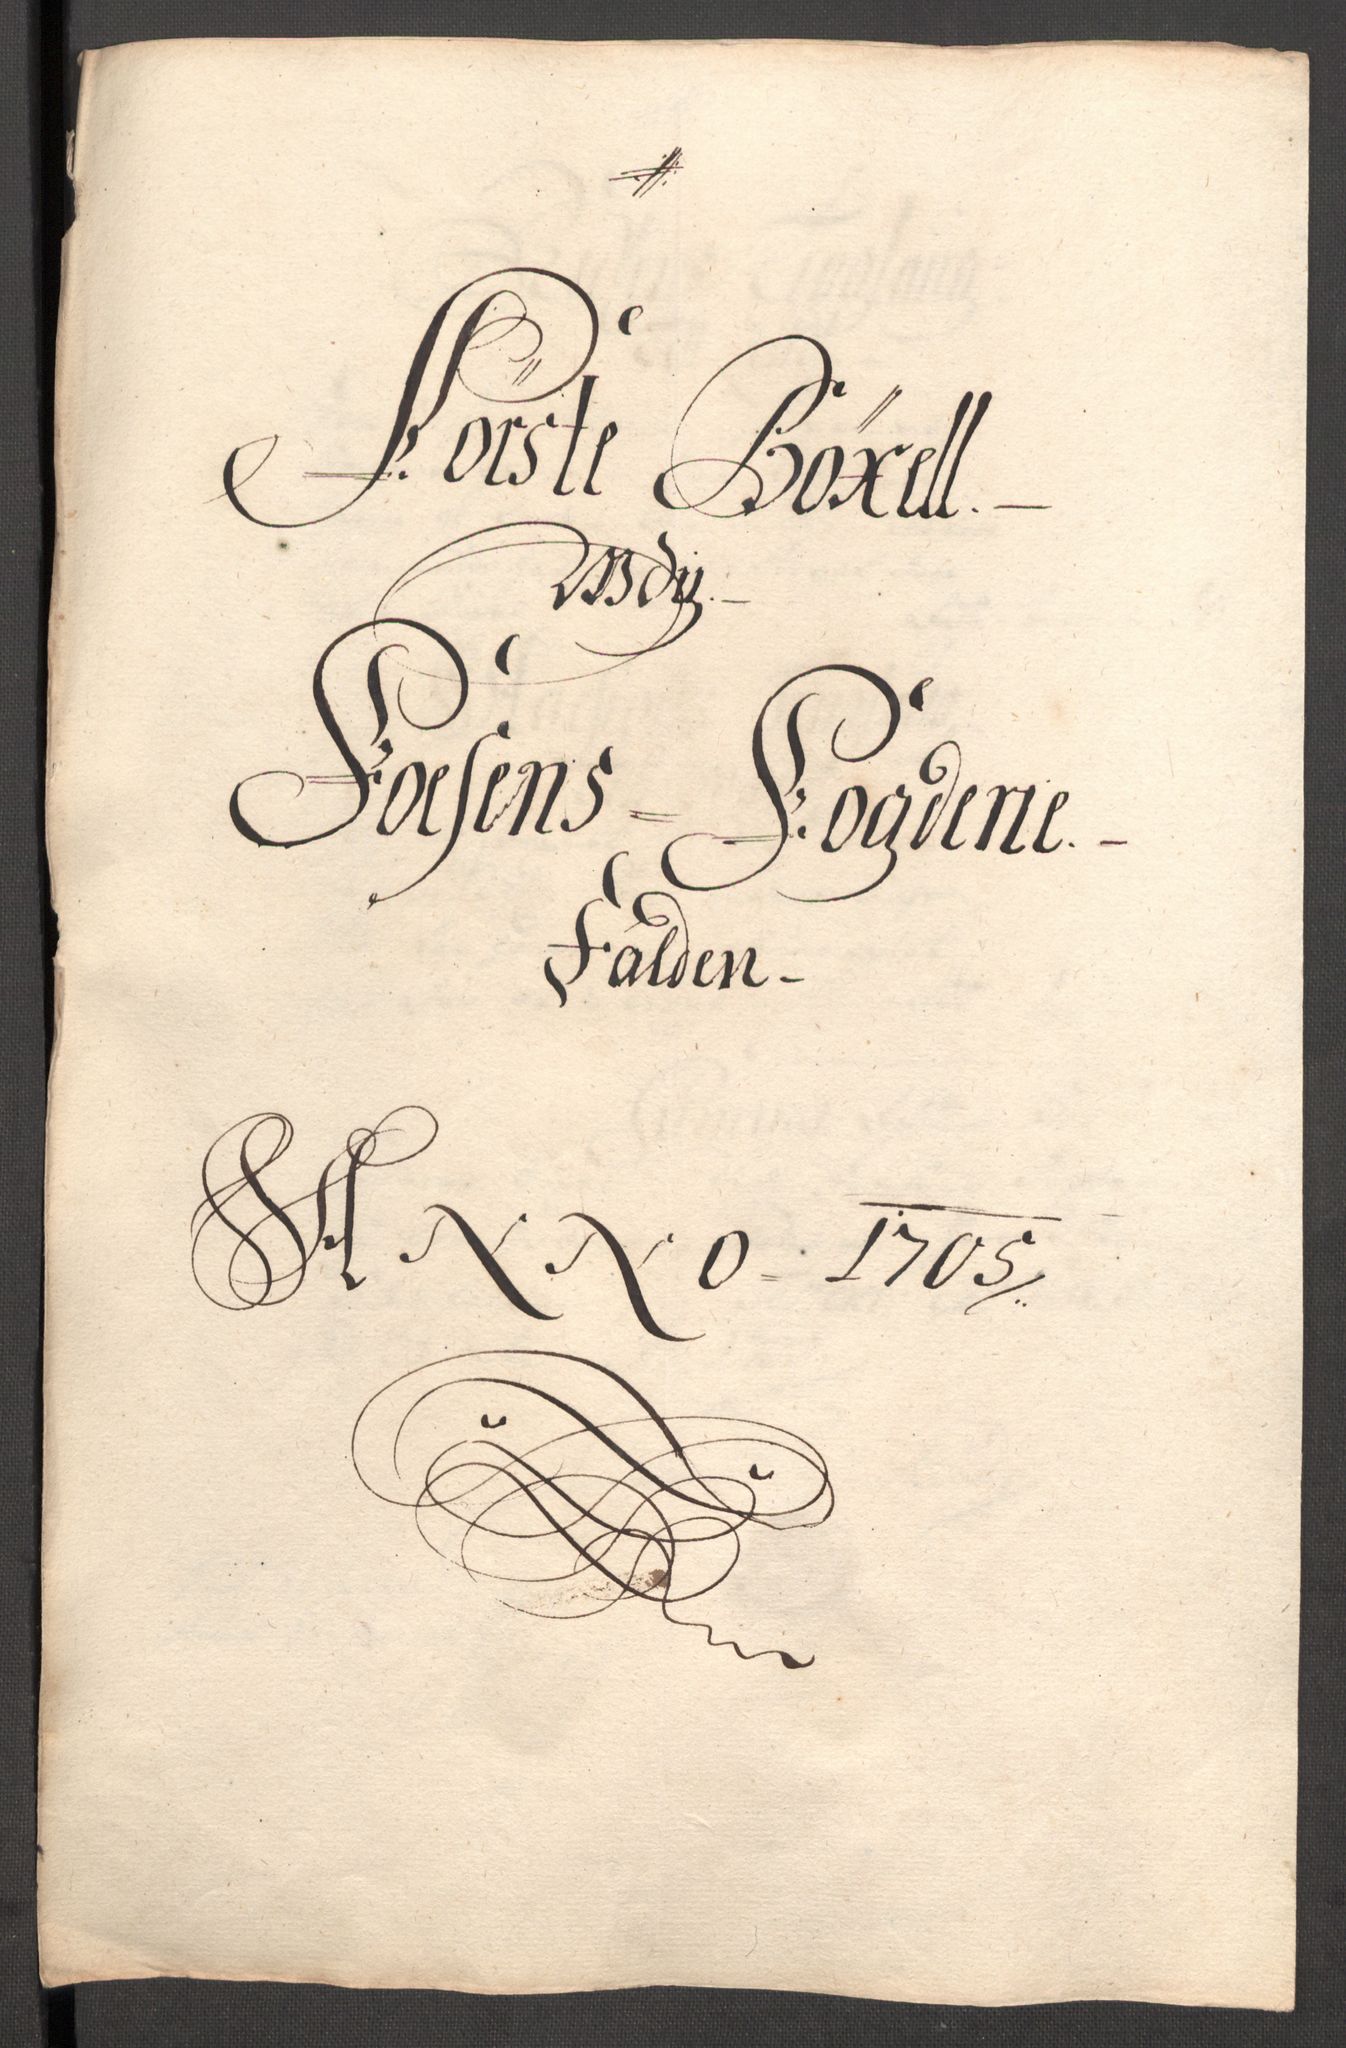 Förste Böxell.
Udy
Foesens = Fogderie.
Falden
ANNO = 1705